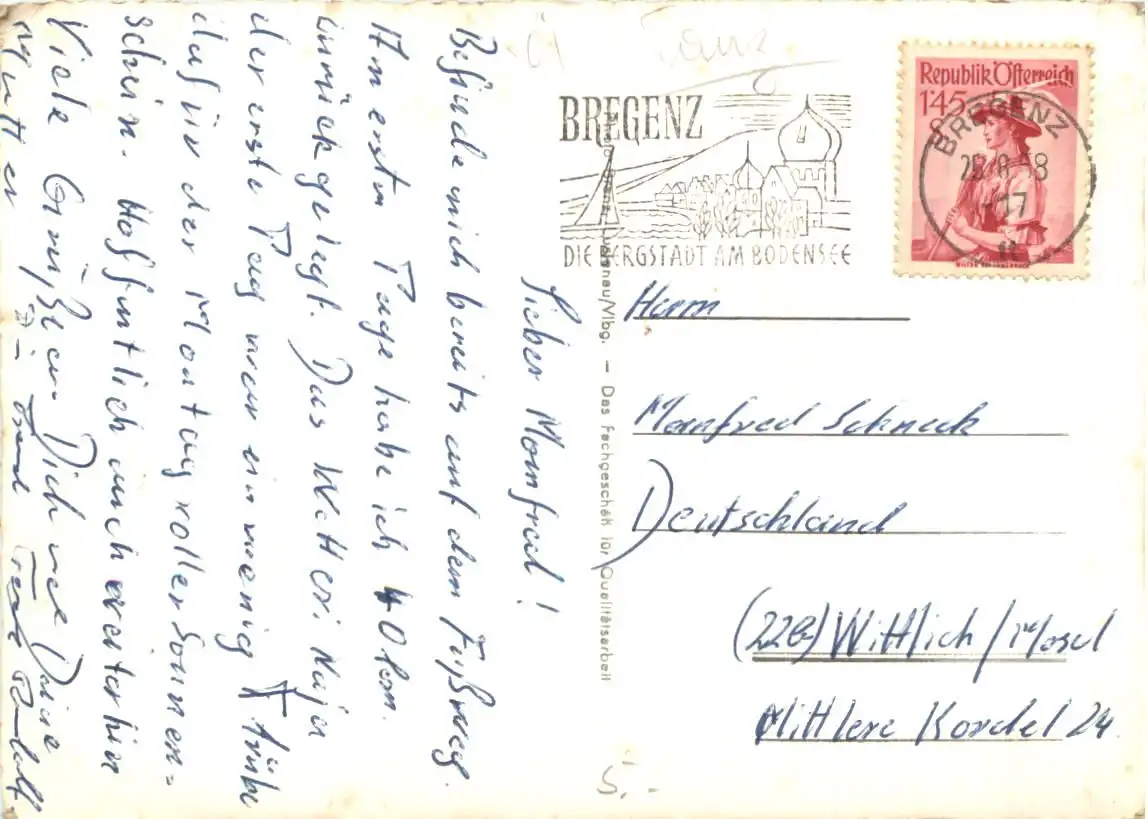 Lieber Manfred!
Befinde mich bereits auf dem Fußweg.
Am ersten Tage habe ich 40 km
zurückgelegt. Das Wetter: Naja
der erste Tag war ein wenig trübe
dafür der Montag voller Sonnen=
schein. Hoffentlich auch weiterhin
Viele Grüße an Dich und Deine
Mutter
BREGENZ
DIE BERGSTADT AM BODENSEE
Republik Österreich
1'45
BREGENZ
Lustenau/Vlbg. — Das Fachgeschäft für Qualitätsarbeit
Herrn
Manfred Schneck
Deutschland
(22b) Wittlich/Mosel
Mittlere Kordel 24
5.-